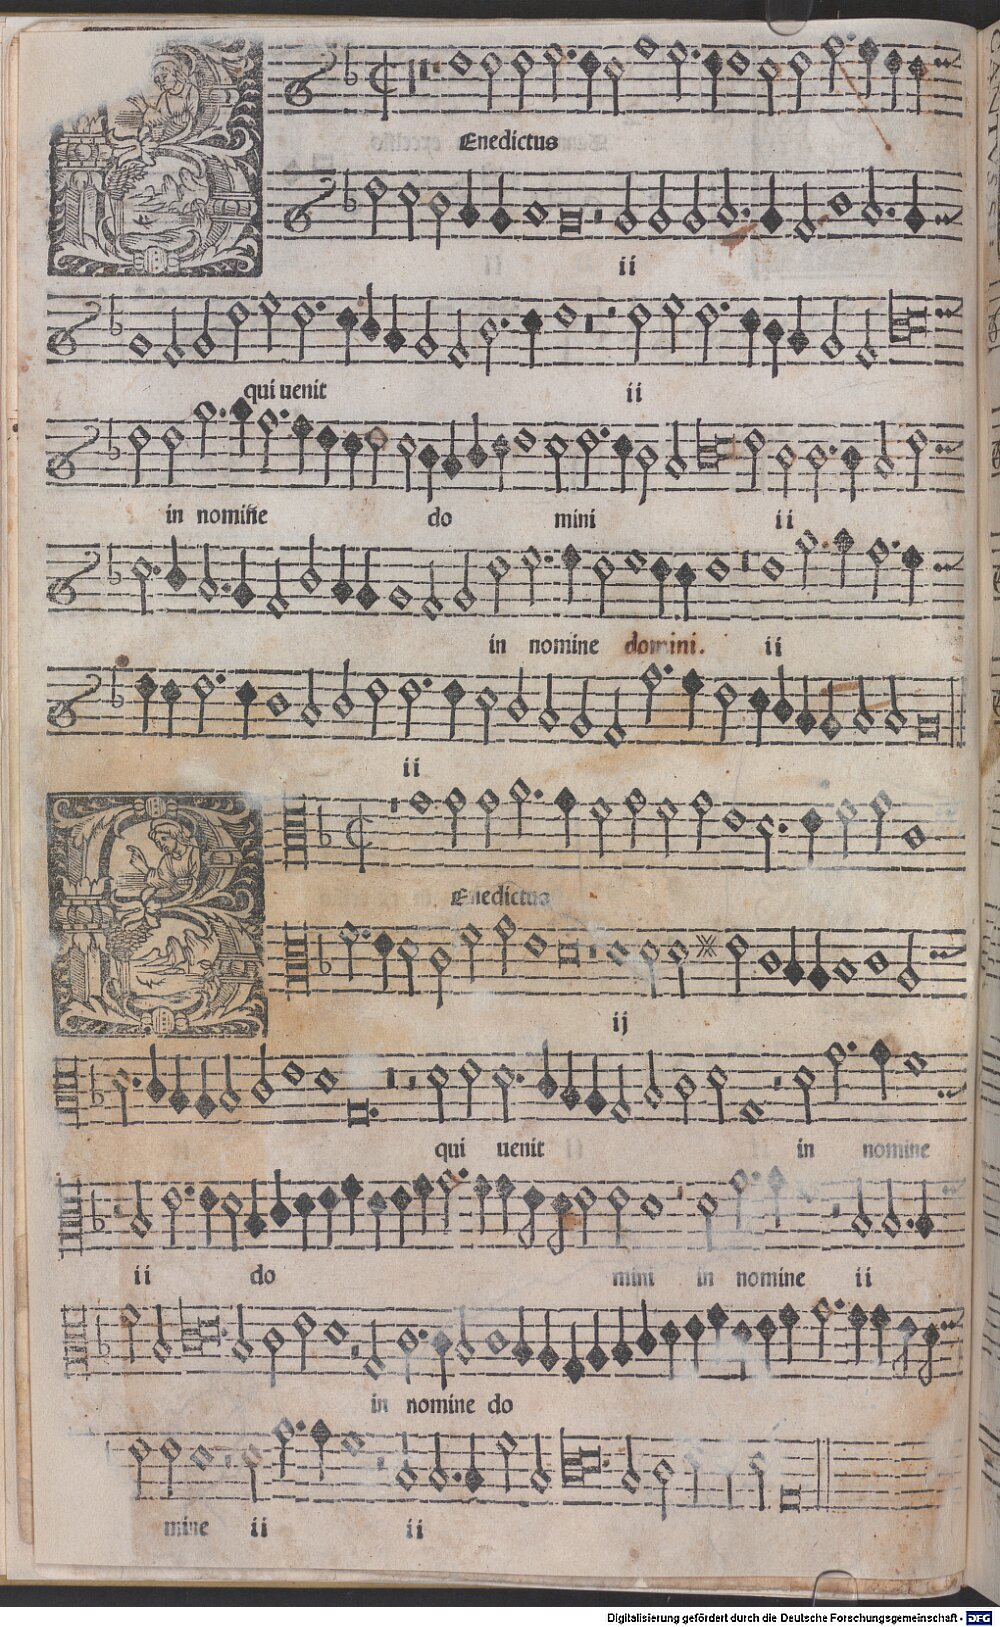 BEnedictus
ii
qui uenit ii
in nomine do mini ii
in nomine domini. ii
ii
BEnedictus
ij
qui uenit in nomine
ii do mini in nomine ii
in nomine do
mine ii ii
Digitalisierung gefördert durch die Deutsche Forschungsgemeinschaft - DFG